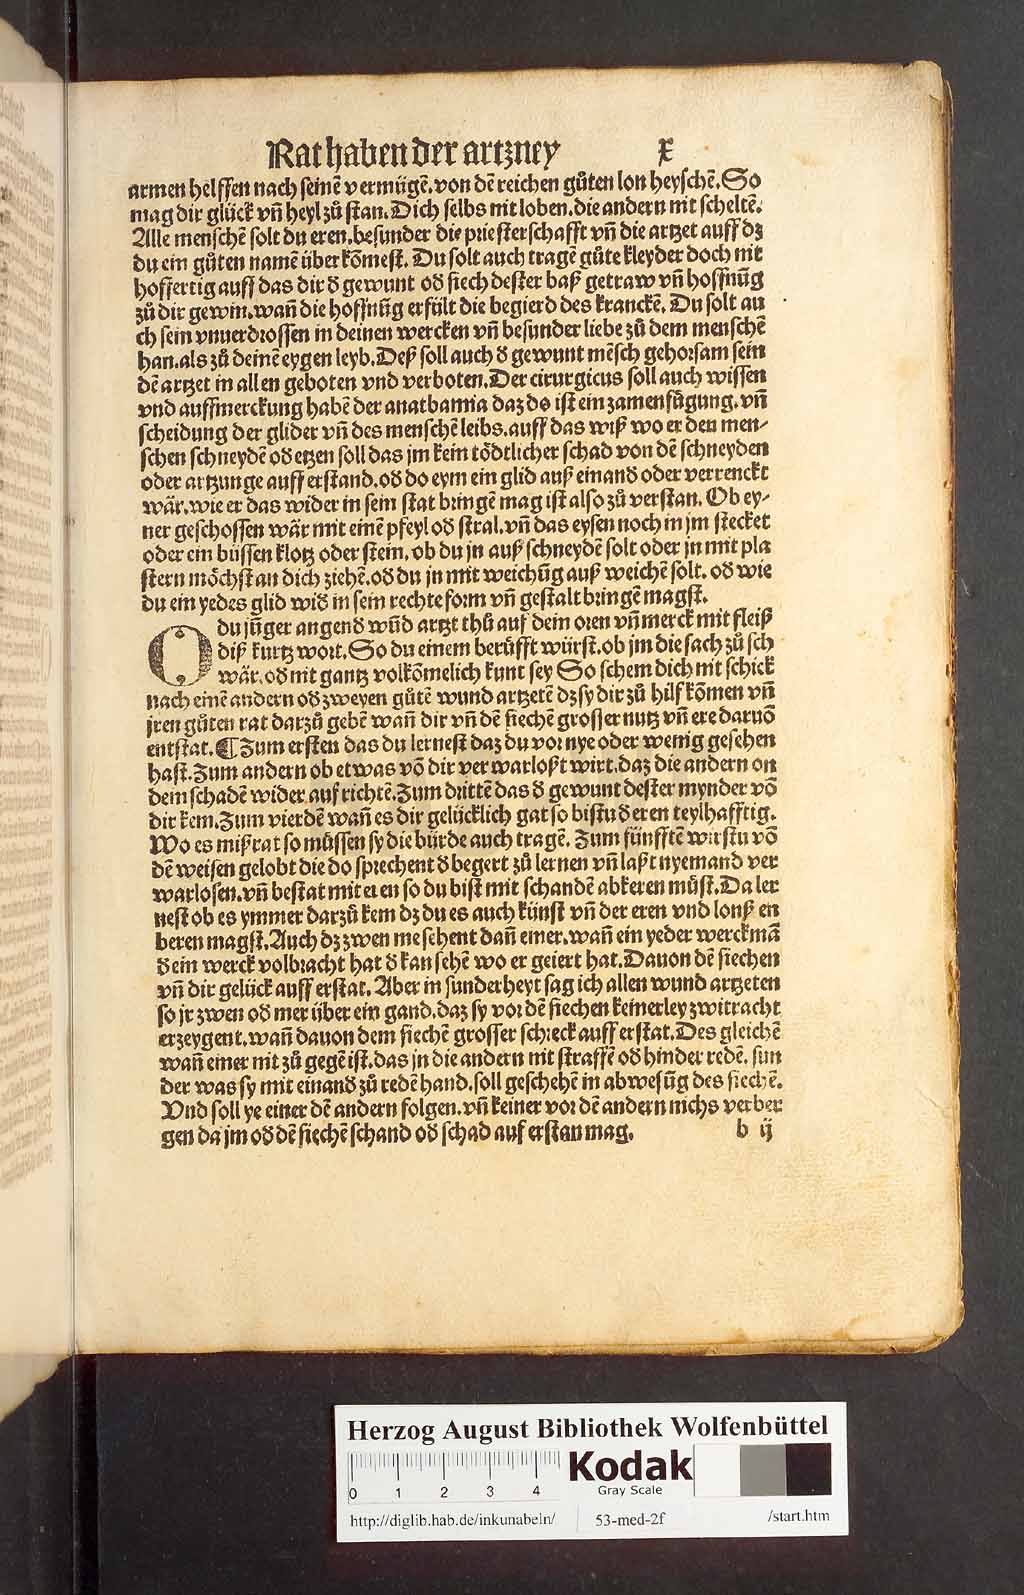 Rat haben der artzney x
armen helffen nach seinē vermügē. von dē reichen gůten lon heyschē. So
mag dir glück vñ heyl zů stan. Dich selbs nit loben. die andern nit scheltē.
Alle menschē solt du eren. besunder die priesterschafft vñ die artzet auff dz
du ein gůten namē über kōmest. Du solt auch tragē gůte kleyder doch nit
hoffertig auff das dir đ gewunt ođ siech dester baß getraw vñ hoffnūg
zů dir gewin. wañ die hoffnūg erfült die begierd des kranckē. Du solt au
ch sein vnuerdrossen in deinen wercken vñ besunder liebe zů dem menschē
han. als zů deinē eygen leyb. Deß soll auch đ gewunt mēsch gehorsam sein
dē artzet in allen geboten vnd verboten. Der cirurgicus soll auch wissen
vnd auffmerckung habē der anathamia daz do ist ein zamenfůgung. vñ
scheidung der glider vñ des menschē leibs. auff das wiß wo er den men-
schen schneydē ođ etzen soll das jm kein tödtlicher schad von dē schneyden
oder artzunge auff erstand. ođ do eym ein glid auß einanđ oder verrenckt
wär. wie er das wider in sein stat bringē mag ist also zů verstan. Ob ey-
ner geschossen wär mit einē pfeyl ođ stral. vñ das eysen noch in jm stecket
oder ein büssen klotz oder stein. ob du jn auß schneydē solt oder jn mit pla
stern möchst an dich ziehē. ođ du jn mit weichūg auß weichē solt. ođ wie
du ein yedes glid wiđ in sein rechte form vñ gestalt bringē magst.
O du jūger angenđ wūd artzt thů auf dein oren vñ merck mit fleiß
diß kurtz wort. So du einem berůfft würst. ob jm die sach zů sch
wär. ođ nit gantz volkōmelich kunt sey So schem dich nit schick
nach einē andern ođ zweyen gůtē wund artzetē dz sy dir zů hilf kōmen vñ
jren gůten rat darzů gebē wañ dir vñ dē siechē grosser nutz vñ ere daruō
entstat. ¶ Zum ersten das du lernest daz du vor nye oder wenig gesehen
hast. Zum andern ob etwas vō dir verwarloßt wirt. daz die andern on
dem schadē wider auf richtē. Zum drittē das đ gewunt dester mynder vō
dir kem. Zum vierdē wañ es dir gelücklich gat so bistu đ eren teylhafftig.
Wo es mißrat so müssen sy die bürde auch tragē. Zum fünfftē wirstu vō
dē weisen gelobt die do sprechent đ begert zů lernen vñ laßt nyemand ver
warlosen. vñ bestat mit eren so du bist mit schandē abkeren můst. Da ler
nest ob es ymmer darzů kem dz du es auch künst vñ der eren vnd lonß en
beren magst. Auch dz zwen me sehent dañ einer. wañ ein yeder werckmā
đ ein werck volbracht hat đ kan sehē wo er geiert hat. Dauon dē siechen
vñ dir gelück auff erstat. Aber in sunderheyt sag ich allen wund artzeten
so jr zwen ođ mer über ein gand. daz sy vor dē siechen keinerley zwitracht
erzeygent. wañ dauon dem siechē grosser schreck auff erstat. Des gleichē
wañ einer nit zů gegē ist. das jn die andern nit straffē ođ hinder redē. sun
der was sy mit einanđ zů redē hand. soll geschehē in abwesūg des siechē.
Vnd soll ye einer dē andern folgen. vñ keiner vor dē andern nichs verber
gen da jm ođ dē siechē schand ođ schad auf erstan mag. b ij
Herzog August Bibliothek Wolfenbüttel
0 1 2 3 4
Kodak
Gray Scale
http://diglib.hab.de/inkunabeln/ 53-med-2f /start.htm